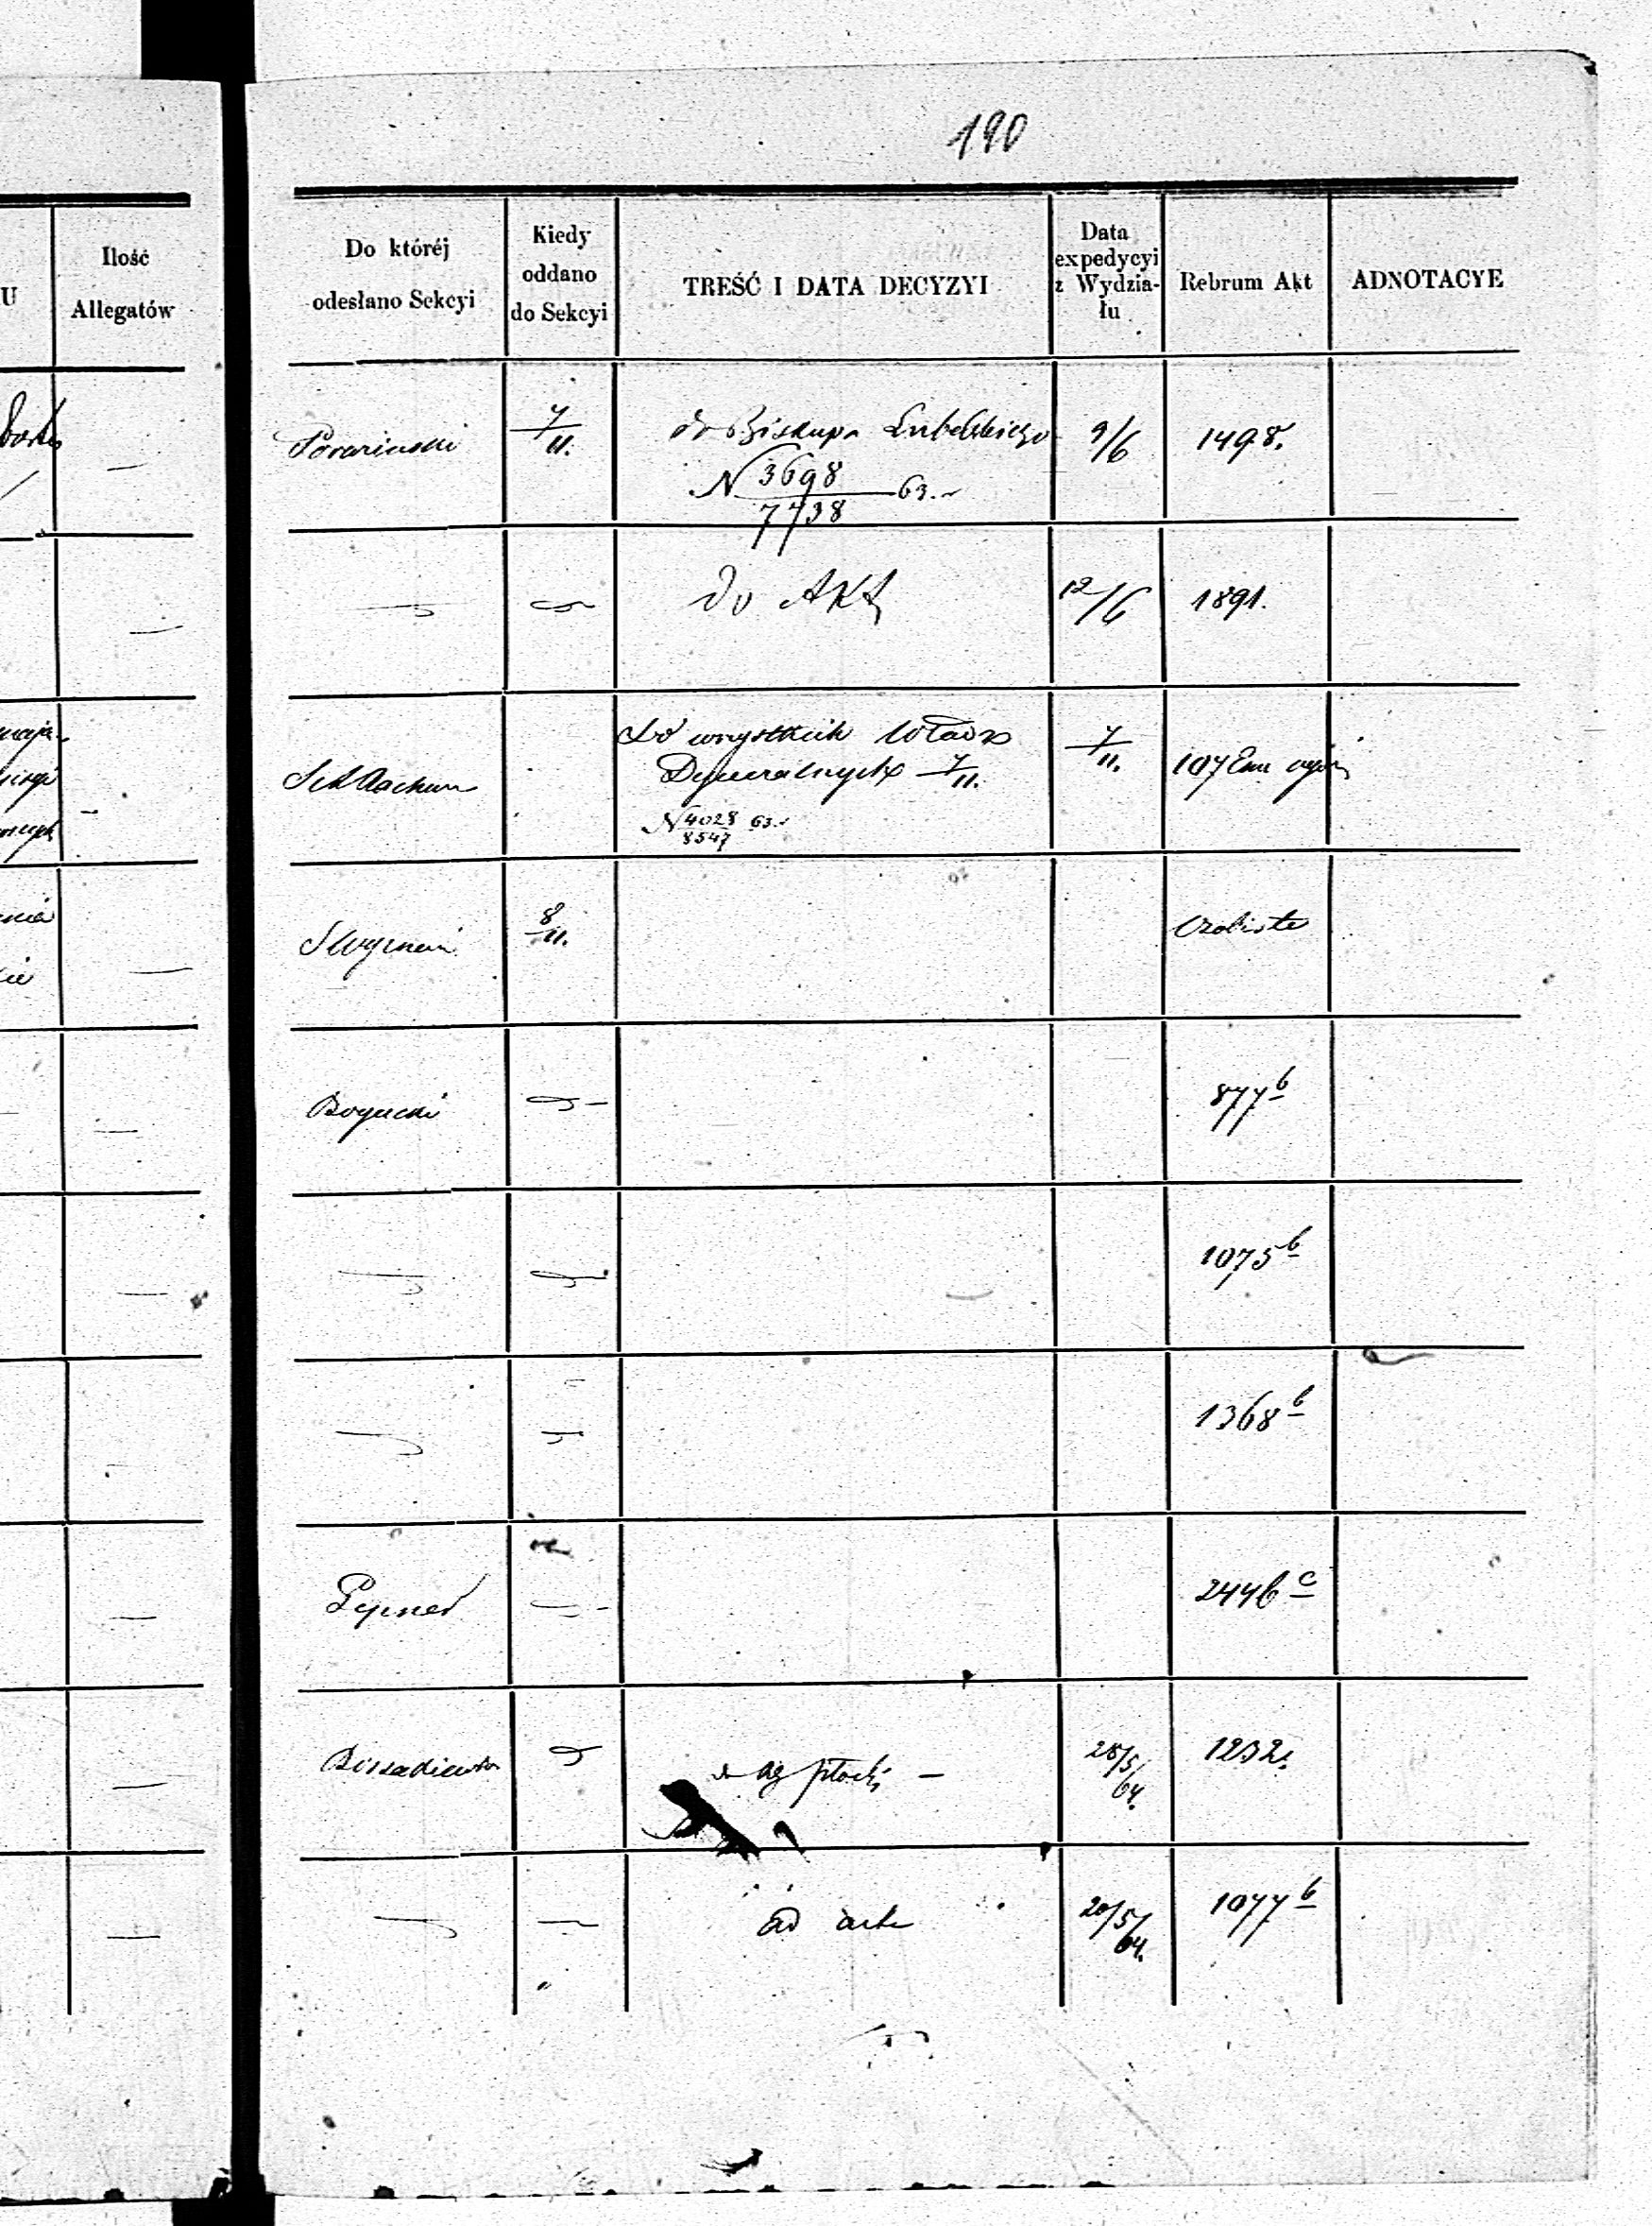 190
U
Ilość
Allegatów
Do któréj
odesłano Sekcyi
Kiedy
oddano
do Sekcyi
TREŚĆ I DATA DECYZYI
Data
expedycyi
z Wydzia-
łu
Rebrum Akt
ADNOTACYE
7/11.
do Biskupa Lubelskiego
N 3698/7738 63.
9/6
1498.
do Akt
12/6
1891.
Sek Rachun
do wszystkich Władz
Dyecezalnych 7/11.
N 4028/8547 63.
7/11.
107
8/11.
Osobiste
Bogucki
877 b
1075 b
1368 b
2446 c
1232.
25/5/64.
ad acta
20/5/64.
1077 b